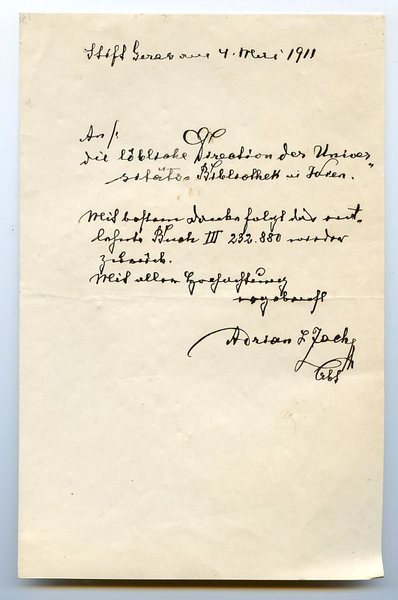 Stift Geras am 4. Mai 1911
An/:
die löbliche Direction der Univer„
sitäts Bibliothek in Wien.
Mit bestem Danke folgt das ent„
lehnte Buch III 232.880 wieder
zurück.
Mit aller Hochachtung
ergebenst
Adrian Zach
Abt